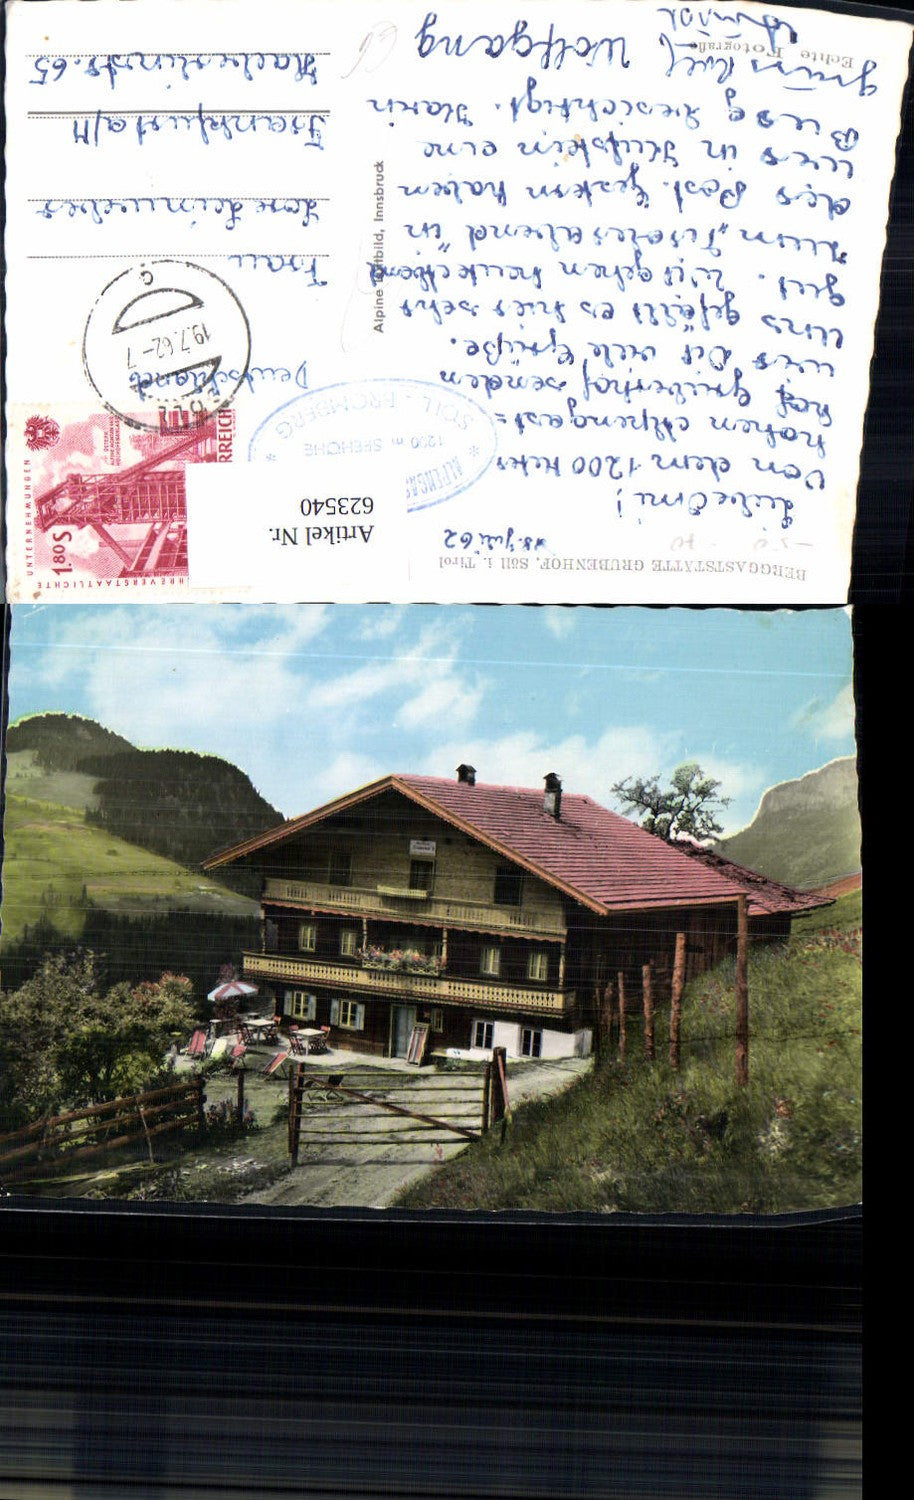 BERGGASTSTÄTTE GRUBENHOF, Söll i. Tirol
18. Juli 62
Liebe Omi!
Von dem 1200 Meter
hohen Alpengast=
hof Grubenhof senden
wir Dir viele Grüße.
Uns gefällt es hier sehr
gut. Wir gehen heute Abend
zum "Tirolerabend" in
der Post. Gestern haben
wir in Kufstein eine
Burg besichtigt. Karin
Wolfgang
Echte Fotografie
Alpine Luftbild, Innsbruck
SÖLL - BROMBERG
1200 m SEEHÖHE
Artikel Nr.
623540
19.7.62-7
C
UNTERNEHMUNGEN
VERSTAATLICHTE
1.80 S
Deutschland
Frau
Frankfurt a/M